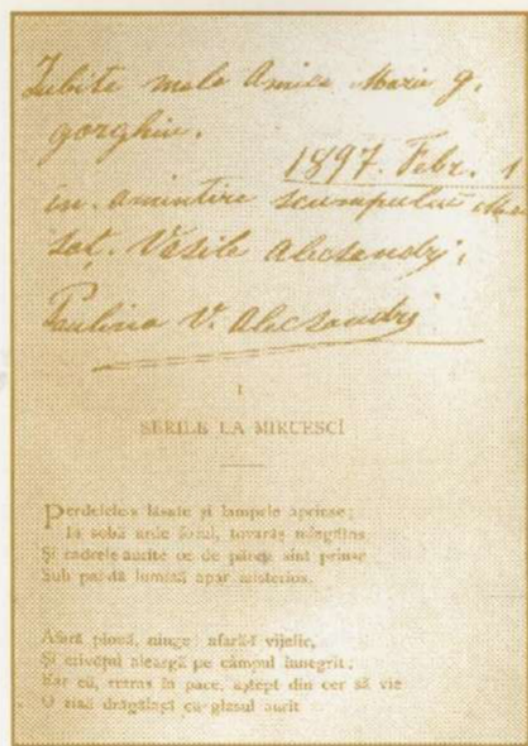 Iubite mele Amice Maria g.
gorghiu.
1897. Febr. 1
in. amintire scumpului Meu
soț. Vasile Alecsandri,
Paulina V. Alecsandri
I
SERILE LA MIRCESCĬ
Perdelele-s lăsate și lampele aprinse;
In sobă arde focul, tovarăș mângâĭos,
Și cadrele-aurite ce de păreți sînt prinse
Sub palidă lumină apar misterios.
Afară plouă, ninge! afară-ĭ vijelie,
Și crivĕțul aleargă pe câmpul înnegrit;
Ear eŭ, retras în pace, aștept din cer să vie
O zină drăgălașă cu glasul aurit